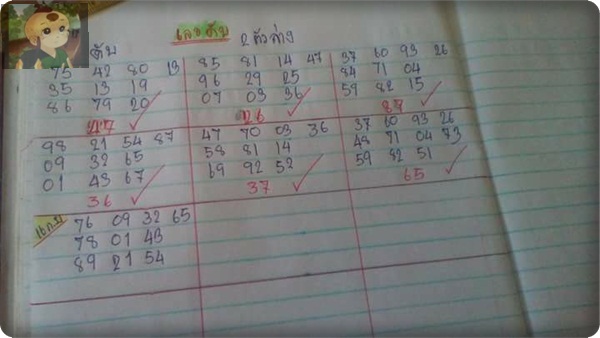 เลขดับ 2 ตัวล่าง
ดับ
75 42 80 13
35 13 19
86 79 20
47
85 81 14 47
96 29 25
07 03 36
26
37 60 93 26
84 71 04
59 82 15
87
98 21 54 87
09 32 65
01 43 67
36
47 70 03 36
58 81 14
69 92 52
37
37 60 93 26
48 71 04 73
59 82 51
65
76 09 32 65
78 01 43
89 21 54